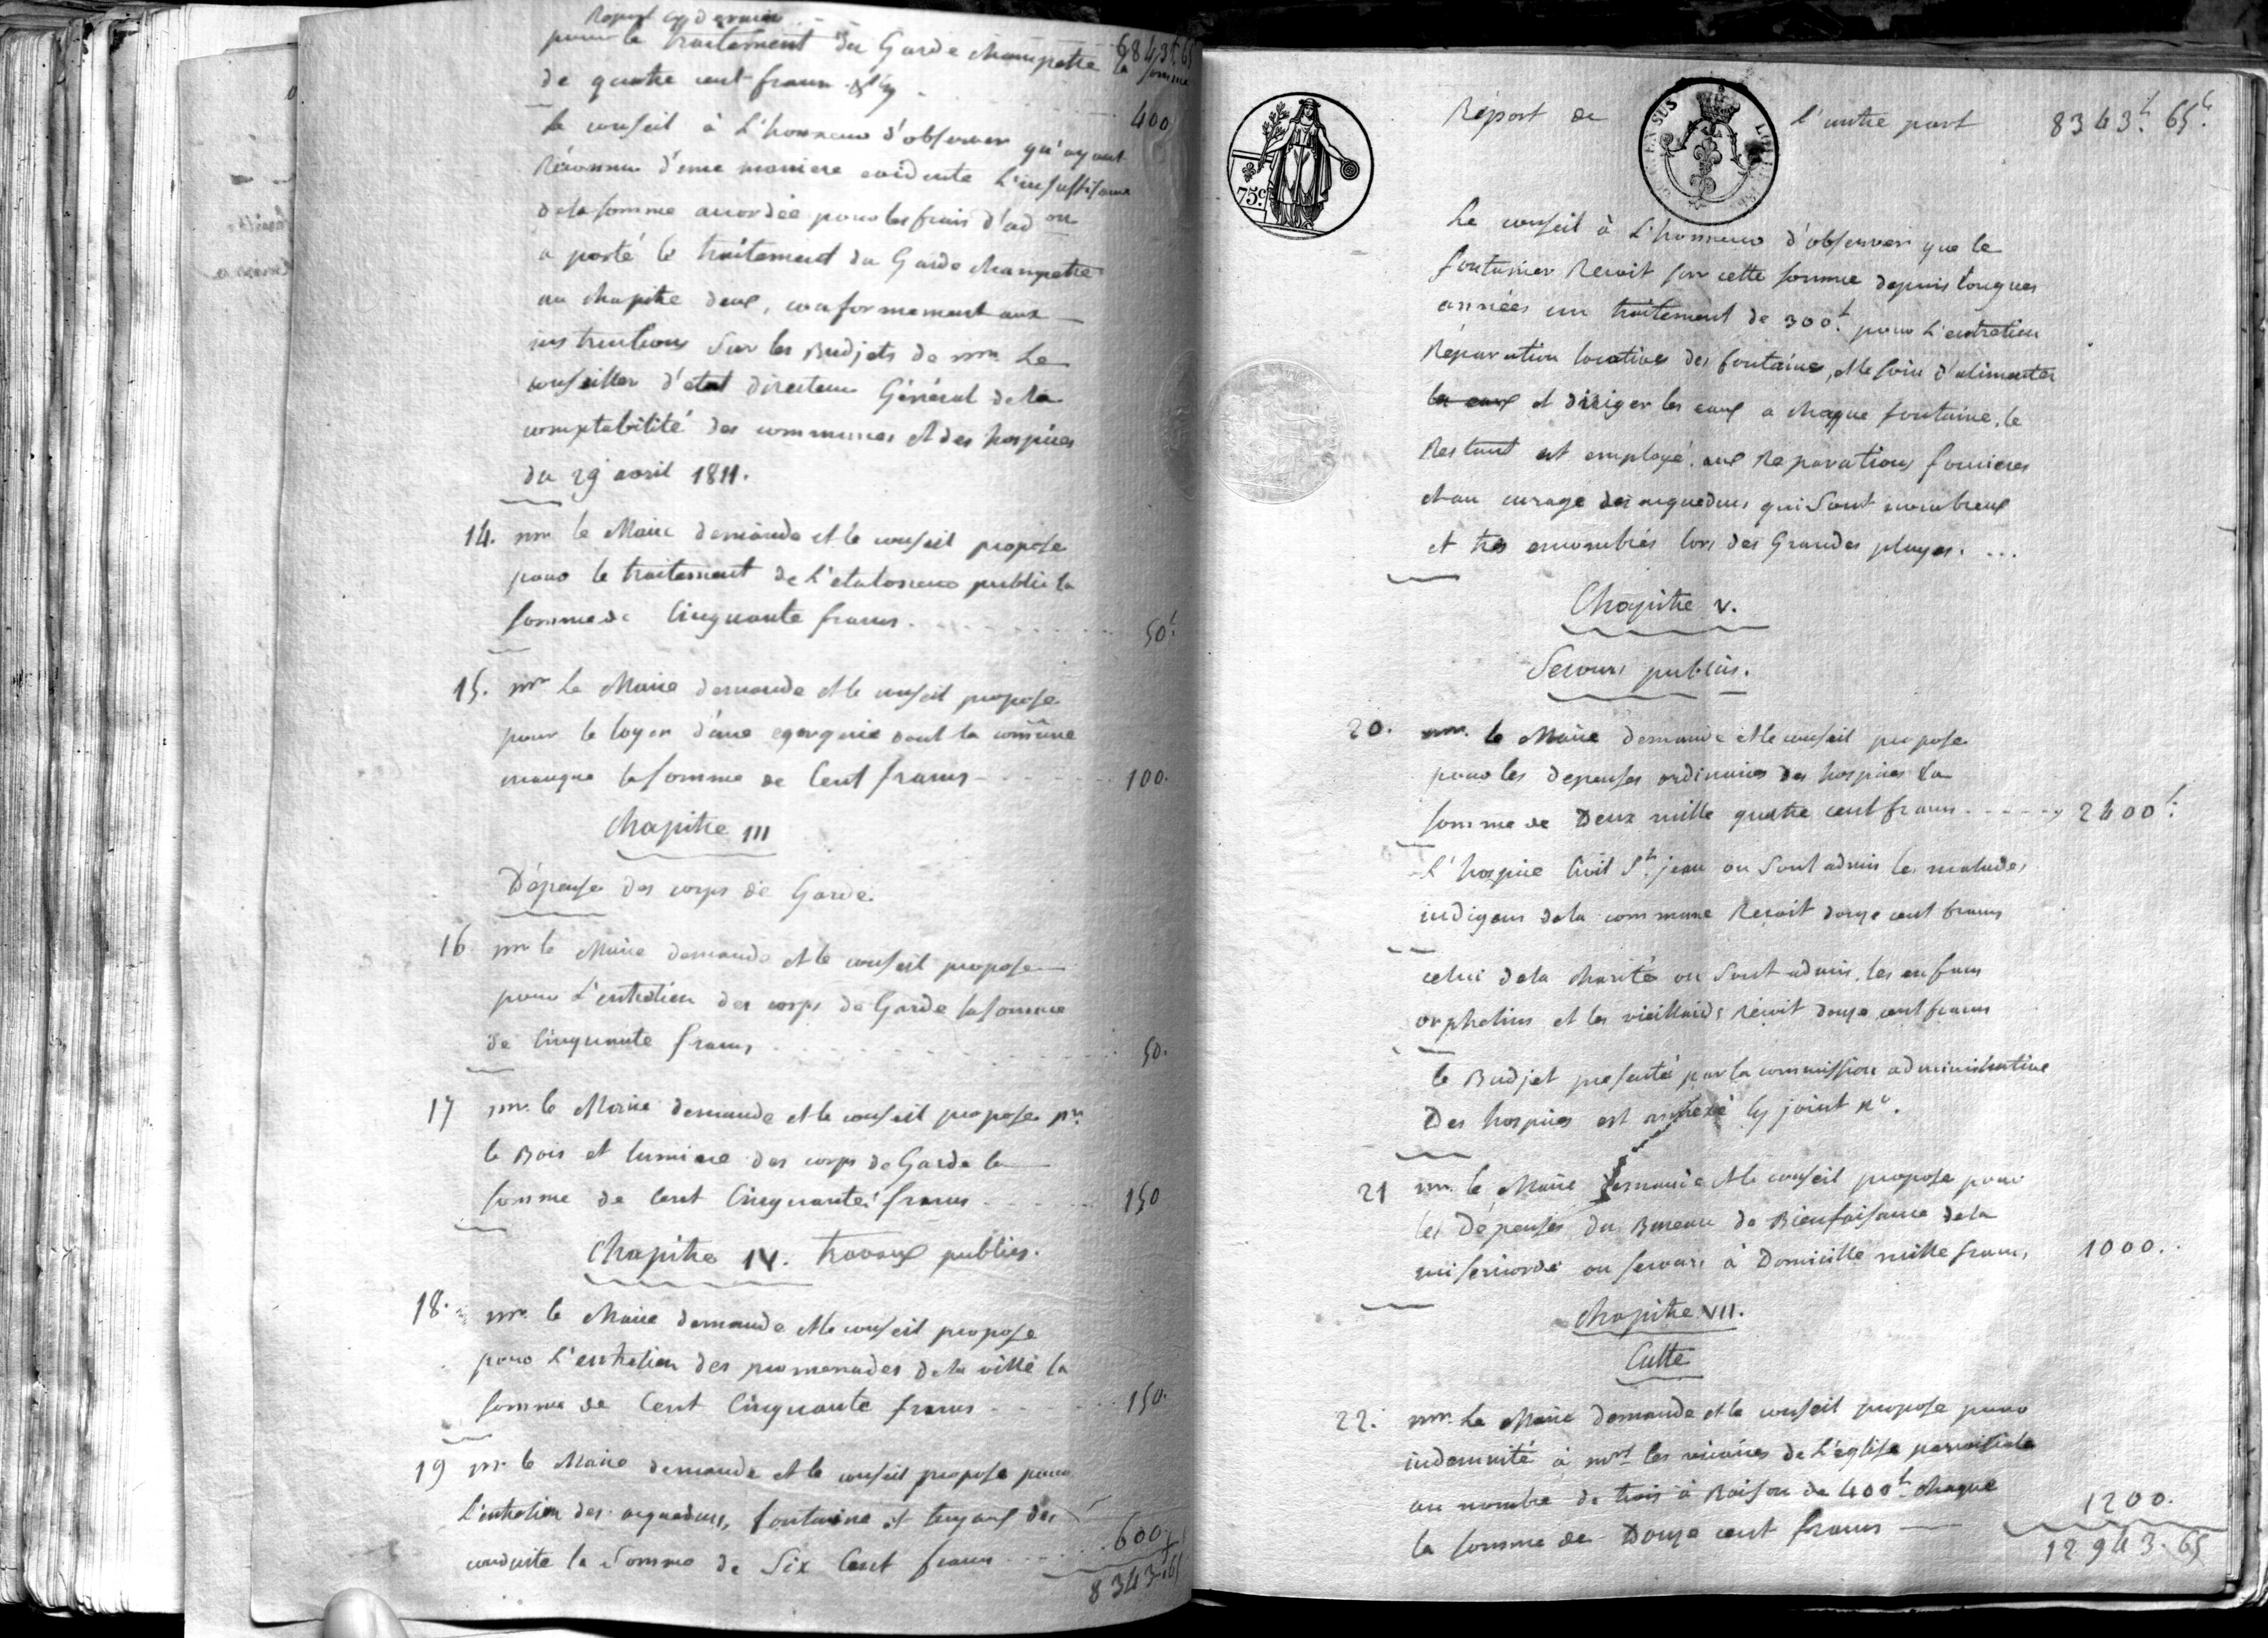 Report cy derniere 6843f. 65
pour le traitement du Garde champetre la somme
de quatre cent francs cy 400
Le conseil à L'honneur d'observer qu'ayant
Réconnu d'une maniere evidente L'insuffisance
de la somme accordée pour les frais d'ad on
a porté le traitement du Garde champetre
au chapitre deux, conformement aux
instructions Sur les Budjets de mr. Le
conseiller d'etat directeur Général de la
comptabilité des communes et des hospices
du 29 avril 1811.
14. mr. le Maire demande et le conseil propose
pour le traitement de L'etalonneur public la
somme de Cinquante francs. 50f.
15. mr. le Maire demande et le conseil propose
pour le loyer d'une dont la comune
manque la somme de Cent francs 100.
Chapitre III
Dépense des corps de Garde.
16 mr le Maire demande et le conseil propose
pour L'entretien des corps de Garde la somme
de Cinquante francs 50.
17 mr. le Maire demande et le conseil propose pr.
le Bois et lumiere des corps de Garde la
somme de Cent Cinquante francs 150
Chapitre IV. travaux publics.
18. mr. le Maire demande et le conseil propose
pour L'entretien des promenades de la ville la
somme de Cent Cinquante francs 150.
19 mr. le Maire demande et le conseil propose pour
L'entretien des aqueducs, fontaine et tuyaux des
conduite la Somme de Six Cent francs 600.
8343.65
Réport de l'autre part 8343f. 65c.
75c.
Le conseil à L'honneur d'observer que le
fontainier Recoit sur cette somme depuis longues
années un traitement de 300f. pour L'entretien
Réparation locatives des fontaines, et le soin d'alimenter
les eaux et diriger les eaux a chaque fontaine, le
Restant est employé aux Reparations foncieres
et au curage des aqueducs qui Sont nombreux
et très encombrés lors des Grandes pluyes. ...
Chapitre V.
Secours publics.
20. mr. le Maire demande et le conseil propose
pour les depenses ordinaires des hospices la
somme de Deux mille quatre cent francs 2400f.
L'hospice Civil St. jean ou Sont admis les malades
indigens de la commune Recoit douze cent francs
celui de la charité ou Sont admis les enfans
orphelins et les vieillards Recoit douze cent francs
le Budjet presenté par la commission administrative
Des hospices est annexé cy joint no.
21 mr. le Maire demande et le conseil propose pour
les Dépenses du Bureau de Bienfaisance de la
misericorde ou secours à Domicille mille francs 1000.
Chapitre VII.
Culte
22. mr. Le Maire demande et le conseil propose pour
indemnité à mrs les vicaires de L'église parroissiale
au nombre de trois à Raison de 400f. chaque
la somme de Douze cent francs 1200.
12943.65